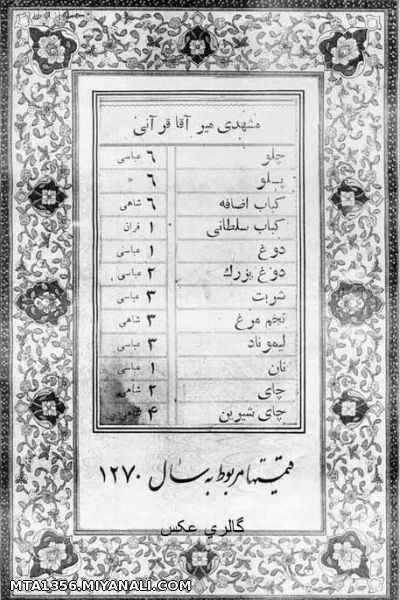 مشهدی میر آقا قرآنی
چلو ۶ عباسی
پلو ۶ »
کباب اضافه ۶ شاهی
کباب سلطانی ۱ قران
دوغ ۱ عباسی
دوغ بزرك ۲ عباسی
شربت ۳ عباسی
تخم مرغ ۳ شاهی
لیموناد ۳ عباسی
نان ۱ عباسی
چای ۲ شاهی
چای شیرین ۴ شاهی
قیمتها مربوط به سال ۱۲۷۰
گالري عکس
MTA1356.MIYANALI.COM